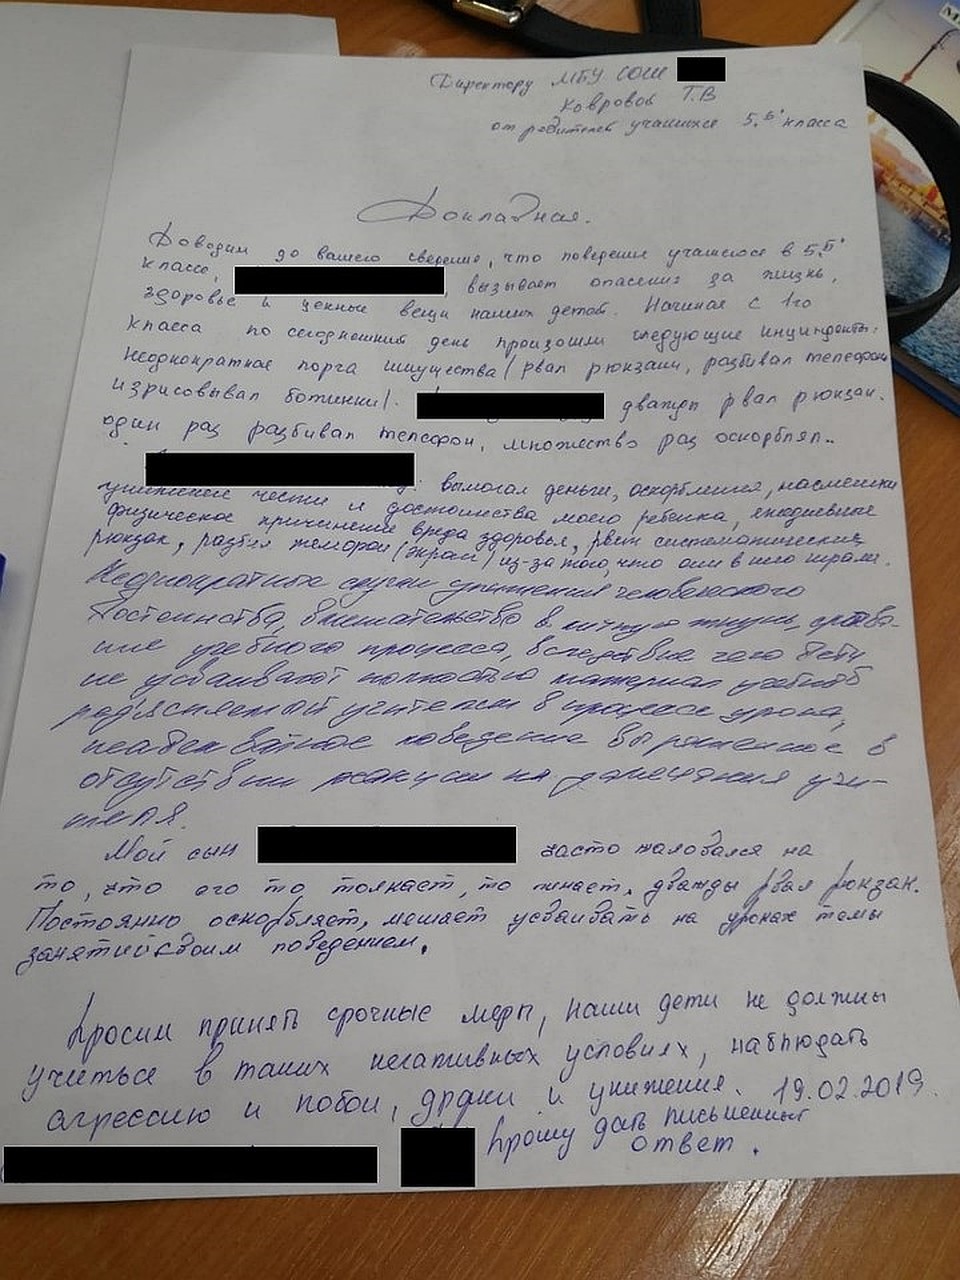 Директору МБУ СОШ
Ковровой Т.В
от родителей учащихся 5 "Б" класса
Докладная.
Доводим до вашего сведения, что поведение учащегося в 5 "Б"
классе, , вызывает опасения за жизнь,
здоровье и ценные вещи наших детей. Начиная с 1го
класса по сегодняшний день произошли следующие инциденты:
Неоднократная порча имущества (рвал рюкзаки, разбивал телефон
изрисовывал ботинки). дважды рвал рюкзак.
один раз разбивал телефон, множество раз оскорблял..
: вымогал деньги, оскорбления, насмешки
унижение чести и достоинства моего ребенка, ежедневное
физическое причинение вреда здоровья, рвет систематически
рюкзак, разбил телефон (экран) из-за того, что они в него играли.
Неоднократные случаи унижения человеческого
достоинства, вмешательство в личную жизнь,
учебного процесса, вследствие чего дети
не усваивают полностью материал
разъясняемый учителем в процессе урока,
неадекватное поведение выраженное в
отсутствии реакции на замечания учи-
теля.
Мой сын часто жаловался на
то, что его то толкает, то пинает, дважды рвал рюкзак.
Постоянно оскорбляет, мешает усваивать на уроках темы
занятий своим поведением.
Просим принять срочные меры, наши дети не должны
учиться в таких негативных условиях, наблюдать
агрессию и побои, драки и унижения. 19.02.2019.
Прошу дать письменный
ответ.